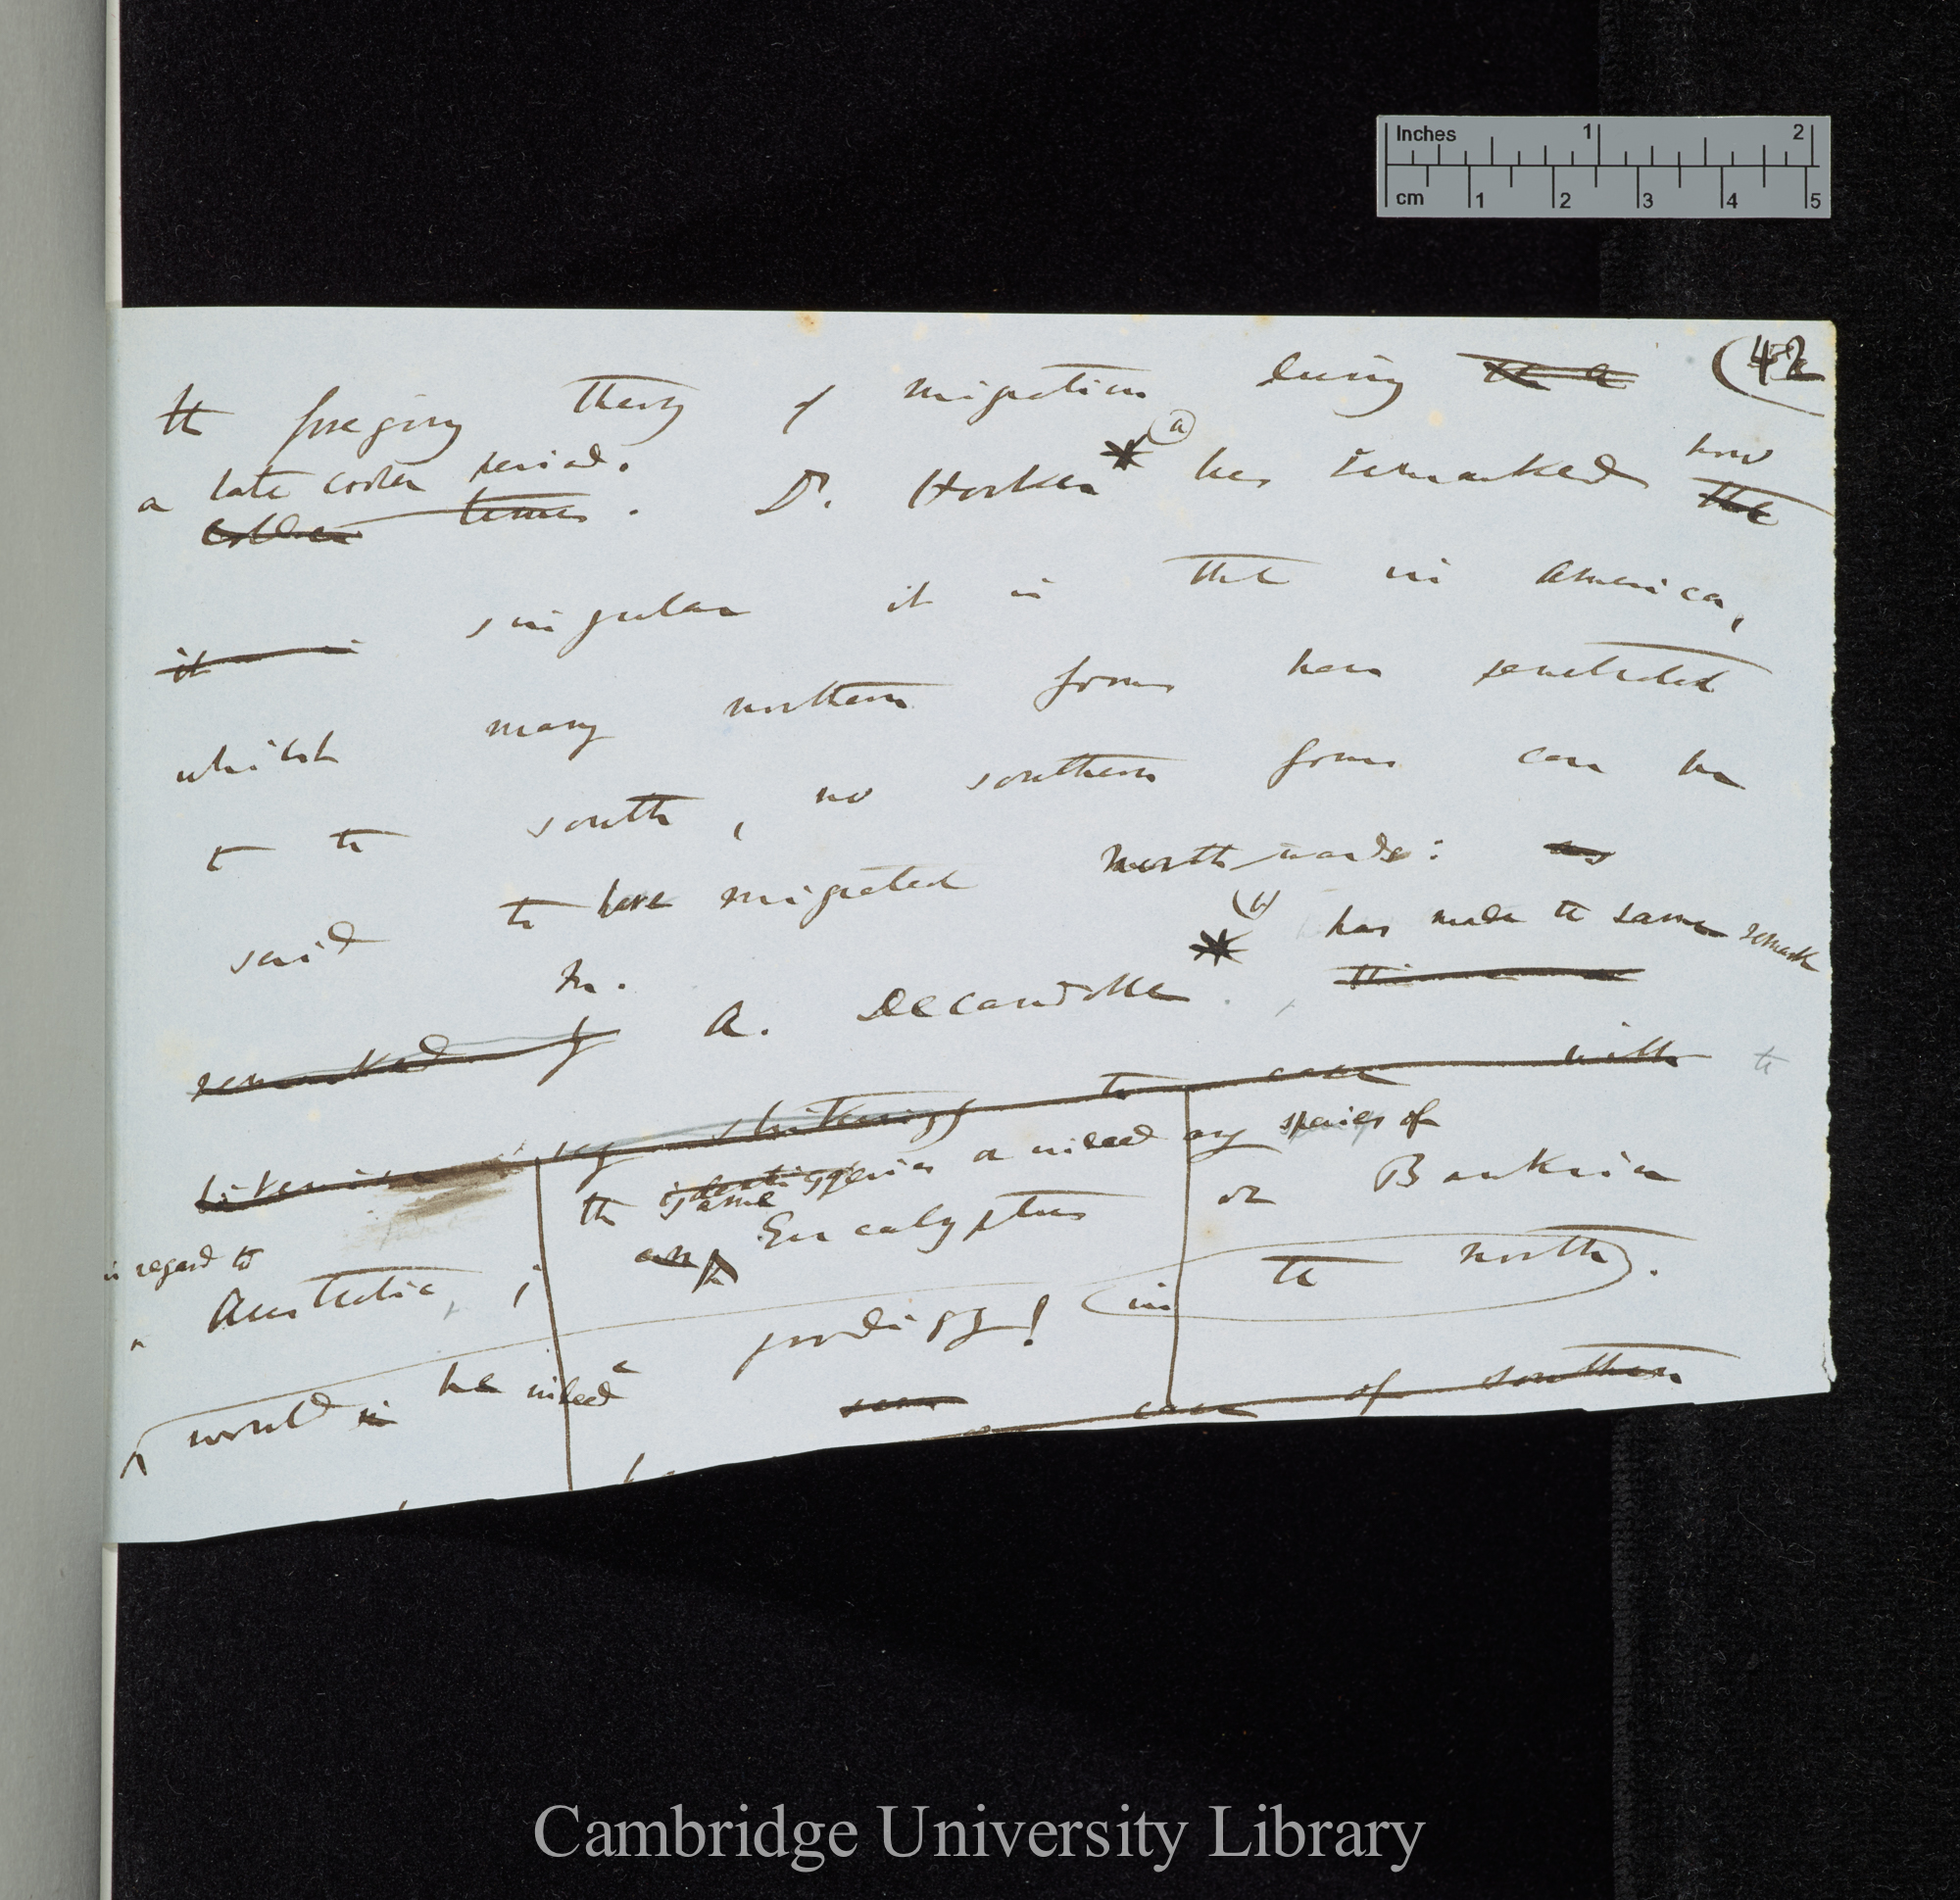 Inches 1 2
cm 1 2 3 4 5
(42
the foregoing theory of migration during the a
a late cooler period.
colder times. Dr. Hooker * (a) has remarked how the
it is singular it is that in America,
whilst many northern forms have penetrated
to the south, no southern forms can be
said to have migrated northwards: as
remarked by Mr. A. Decandolle * (b) has made the same remark
likewise very strikingly the case with the
in regard to Australia, the same species or indeed any species of
an Eucalyptus or Banksia
in the north.
would be indeed a prodigy!
case of southern
Cambridge University Library